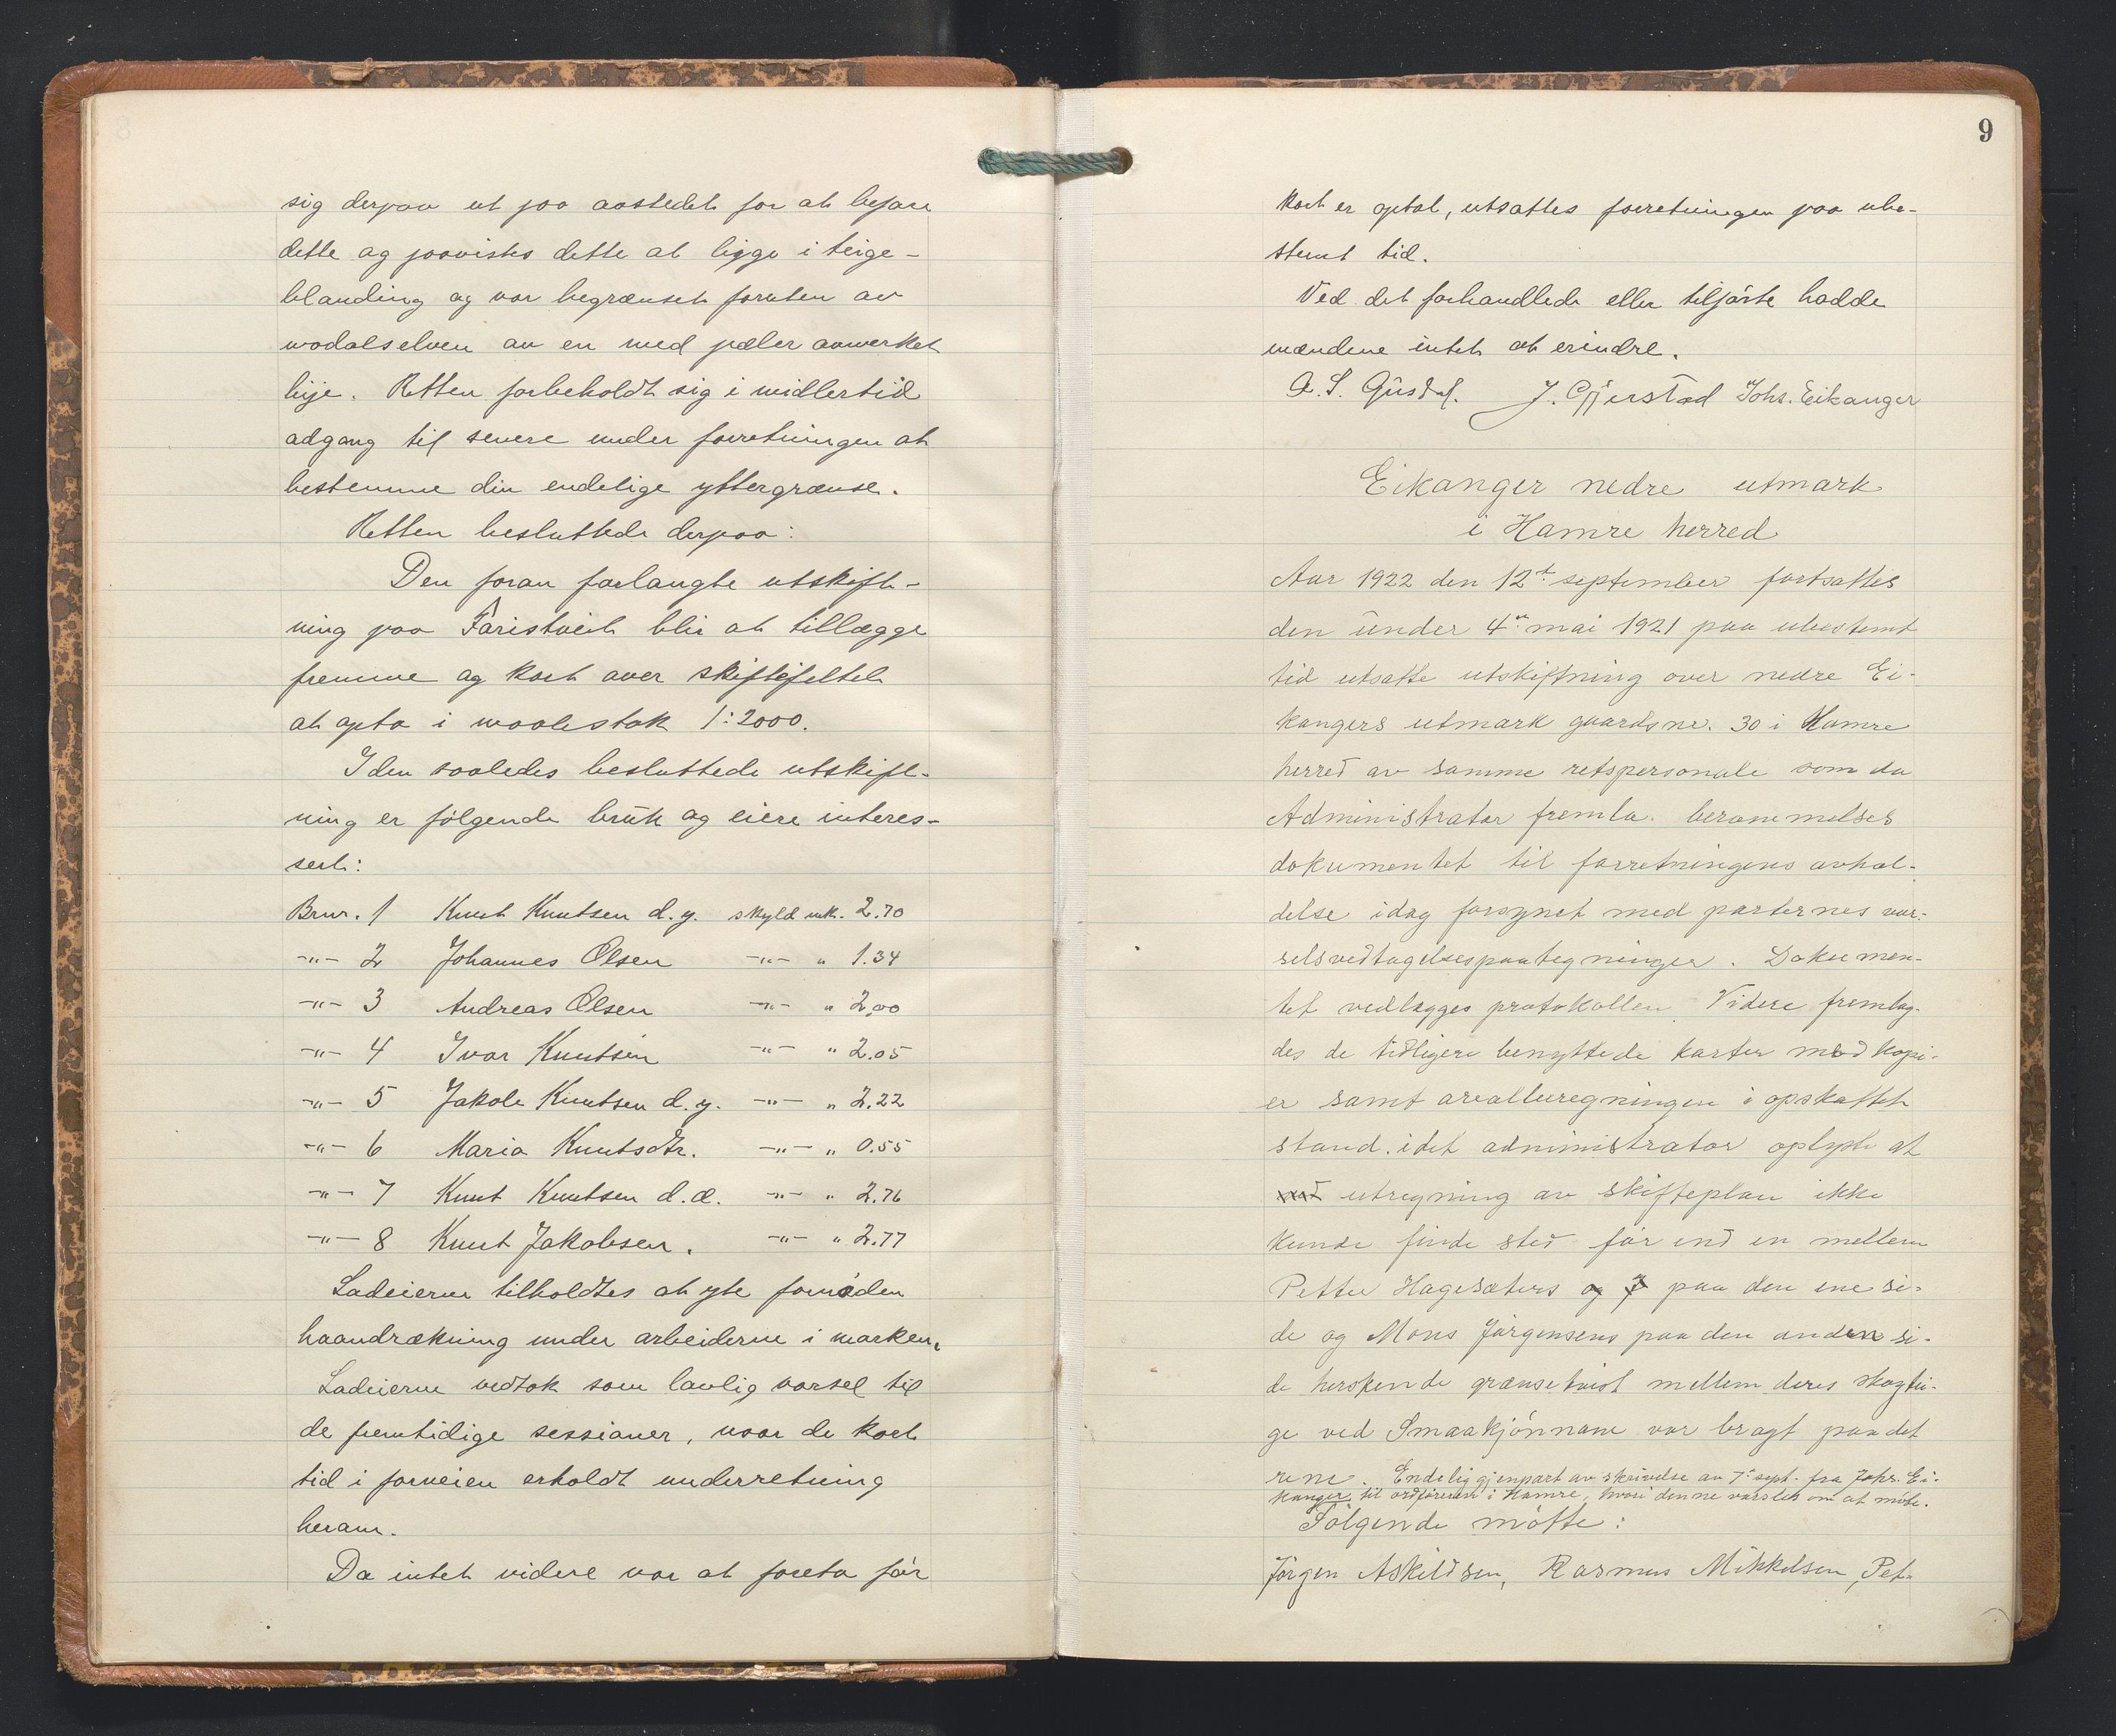 sig derpaa ut paa aastedet for at befare
dette og paavistes dette at ligge i teige-
blanding og var begrænset foruten av
vadalselven av en med pæler avmerket
linje. Retten forbeholdt sig i midlertid
adgang til senere under forretningen at
bestemme den endelige yttergrænse.
Retten besluttede derpaa:
Den foran forlangte utskift-
ning paa Faristveit blir at tillægge
fremme og kart over skiftefeltet
at opta i maalestok 1:2000.
I den saaledes besluttede utskift-
ning er følgende bruk og eiere interes-
sert:
Brnr. 1 Knut Knutsen d.y. skyld mk. 2.70
-"- 2 Johannes Olsen -"- " 1.34
-"- 3 Andreas Olsen -"- " 2,00
-"- 4 Ivar Knutsen -"- " 2.05
-"- 5 Jakob Knutsen d.y. -"- " 2.22
-"- 6 Maria Knutsdtr. -"- " 0.55
-"- 7 Knut Knutsen d.æ. -"- " 2.76
-"- 8 Knut Jakobsen. -"- " 2.77
Lodeierne tilholdtes at yte fornøden
haandrækning under arbeiderne i marken.
Lodeierne vedtok som lovlig varsel til
de fremtidige sessioner, naar de kort
tid i forveien erholdt underretning
herom.
Da intet videre var at foreta før
9
kart er optat, utsattes forretningen paa ube-
stemt tid.
Ved det forhandlede eller tilførte hadde
mændene intet at erindre.
A. S. Gjerstad J. Gjerstad Johs. Eikanger
Eikanger nedre utmark
i Hamre herred
Aar 1922 den 12te september fortsattes
den under 4de mai 1921 paa ubestemt
tid utsatte utskiftning over nedre Ei-
kangers utmark gaardsnr. 30 i Hamre
herred av samme retspersonale som da
Administrator fremla berammelses
dokumentet til forretningens avhol-
delse idag forsynet med parternes var-
selsvedtagelsespaategninger. Dokumen-
tet vedlægges protokollen. Videre fremlag-
des de tidligere benyttede karter med kopi-
er samt arealberegningen i opskattet
stand. idet administrator oplyste at
utregning av skifteplan ikke
kunde finde sted før end en mellem
Petter Hagesæters og paa den ene si-
de og Mons Jørgensens paa den anden si-
de herskende grænsetvist mellem deres skogtei-
ge ved Smaakjønnane var bragt paa det
rene. Endelig gjenpart av skrivelse av 7de sept. fra Johs. Ei-
kanger til ordføreren i Hamre, hvori denne varsles om at møte.
Følgende møtte:
Jørgen Askildsen, Rasmus Mikkelsen, Pet-